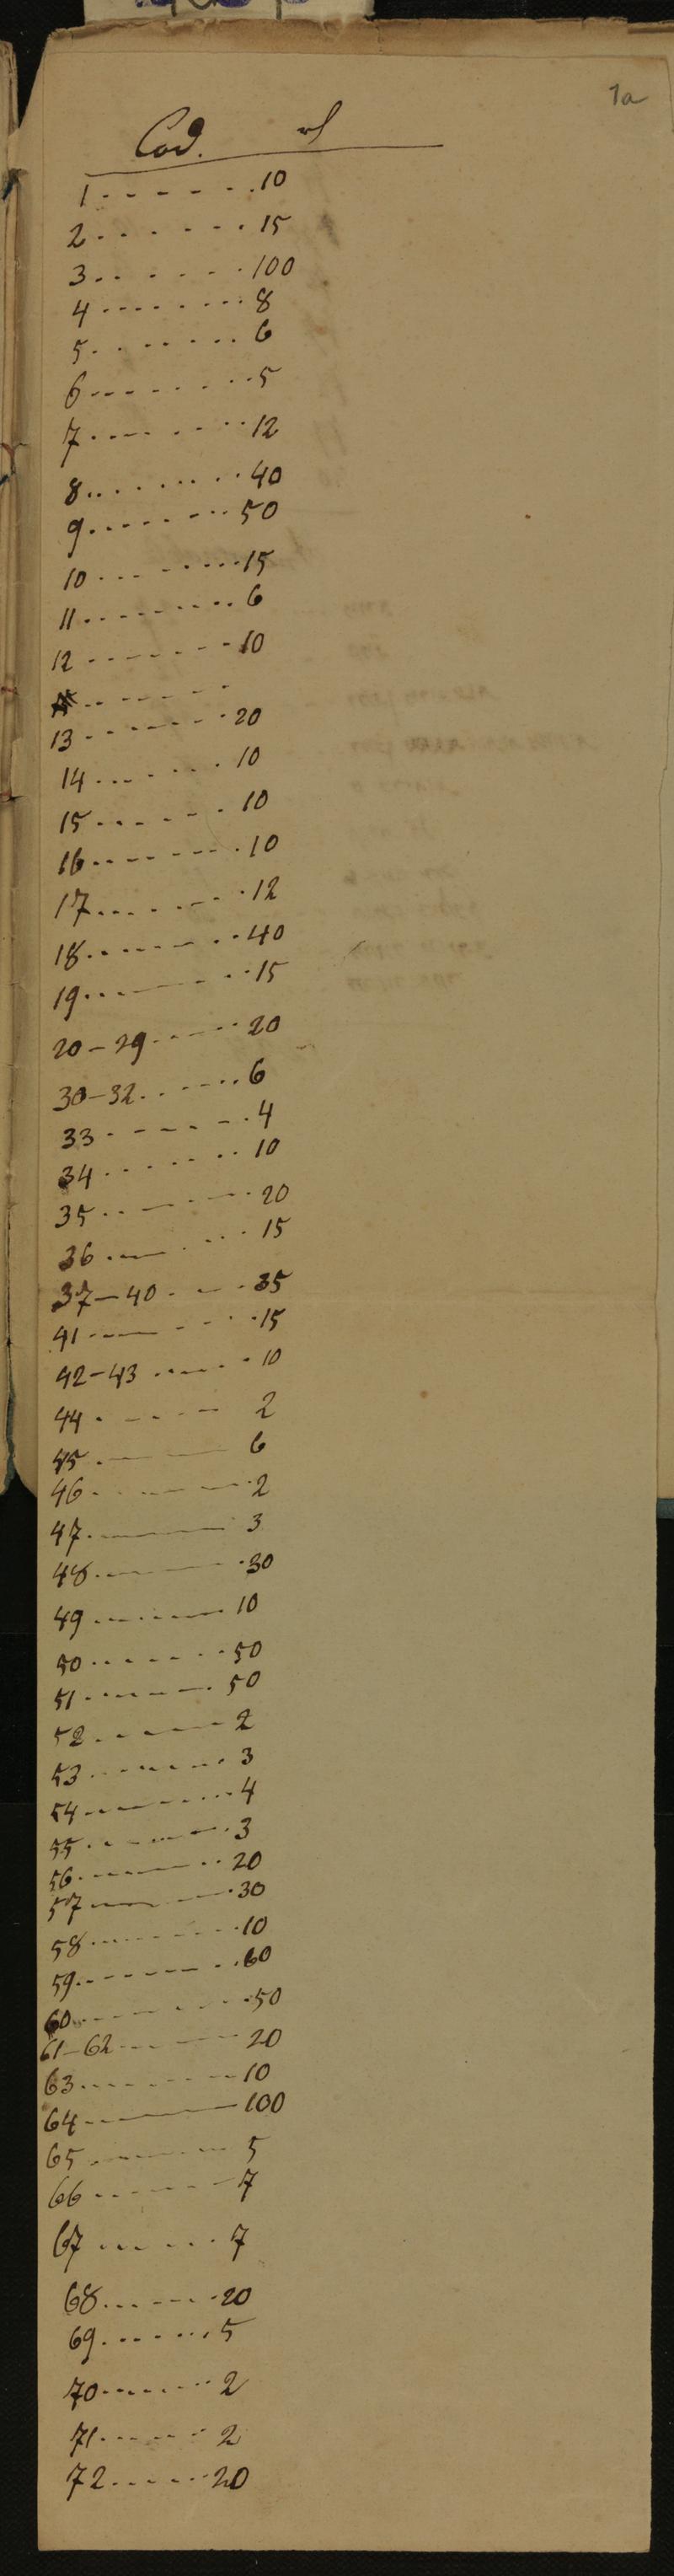 1a
Cod. rl
1 . - - - - . . 10
2 . . . . - . . 15
3 . . . . - . . 100
4 . . . . . . . 8
5 . . . . . . . 6
6 . . . . . . . 5
7 . . . . . . . 12
8 . . . . . . . 40
9 . . . . . . . 50
10 . . . . . . . 15
11 . . . . . . . 6
12 . . . . . . . 10
13 . . . . . . . 20
14 . . . . . . . 10
15 . . . . . . . 10
16 . . . . . . . 10
17 . . . . . . . 12
18 . . . . . . . 40
19 . . . . . . . 15
20-29 . . . . . 20
30-32 . . . . . 6
33 . . . . . . . 4
34 . . . . . . . 10
35 . . . . . . . 20
36 . . . . . . . 15
37-40 . . . . . 35
41 . . . . . . . 15
42-43 . . . . . 10
44 . . . . . . . 2
45 . . . . . . . 6
46 . . . . . . . 2
47 . . . . . . . 3
48 . . . . . . . 30
49 . . . . . . . 10
50 . . . . . . . 50
51 . . . . . . . 50
52 . . . . . . . 2
53 . . . . . . . 3
54 . . . . . . . 4
55 . . . . . . . 3
56 . . . . . . . 20
57 . . . . . . . 30
58 . . . . . . . 10
59 . . . . . . . 60
60 . . . . . . . 50
61-62 . . . . . 20
63 . . . . . . . 10
64 . . . . . . . 100
65 . . . . . . . 5
66 . . . . . . . 7
67 . . . . . . . 7
68 . . . . . . . 20
69 . . . . . . . 5
70 . . . . . . . 2
71 . . . . . . . 2
72 . . . . . . . 20